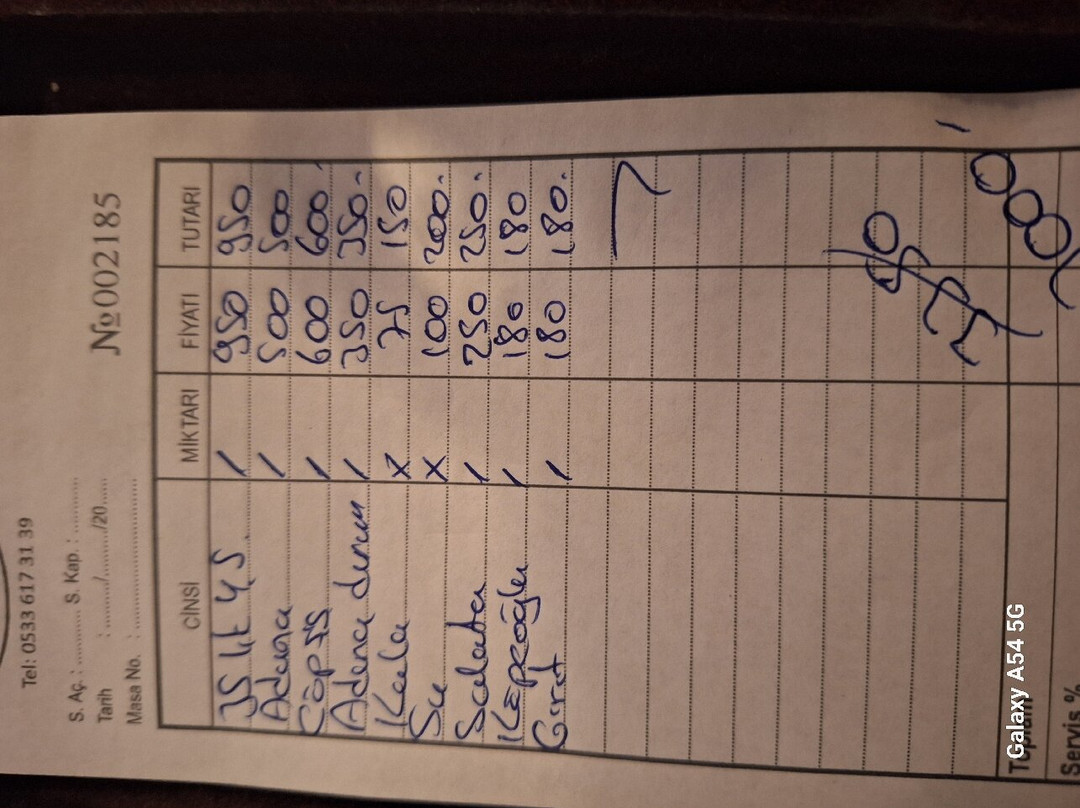 Tel: 0533 617 31 39
S. Aç. : .......... S. Kap. : ..........
Tarih : ......../......../20......
Masa No. : ..............................
№ 002185
CİNSİ MİKTARI FİYATI TUTARI
/ 950 950
Adana / 500 500
Çöp şş / 600 600.
Adana durum / 350 350-
Kola x 75 150
Su x 100 200.
Salata / 250 250.
/ 180 180
Girit / 180 180.
Toplam
Servis %
Galaxy A54 5G